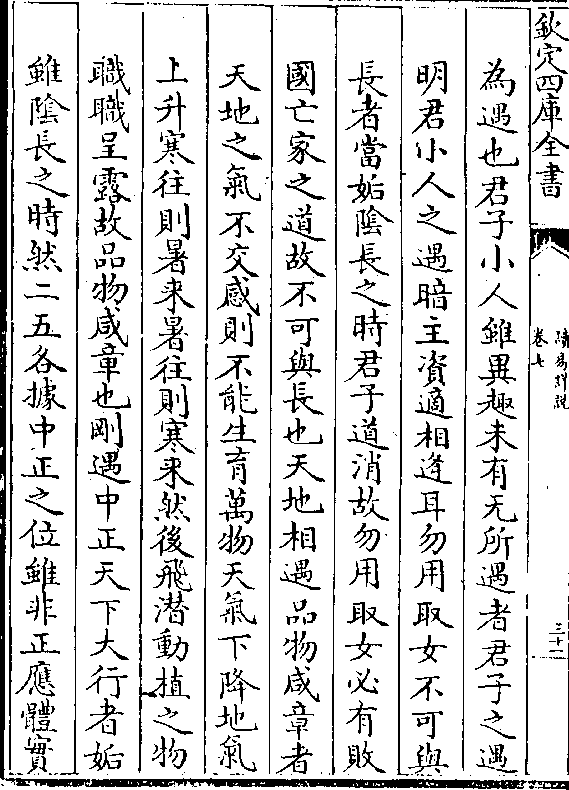 欽定四庫全書
讀易詳說
卷七
三十一
為遇也君子小人雖異趣未有无所遇者君子之遇
明君小人之遇暗主資適相逢耳勿用取女不可與
長者當姤陰長之時君子道消故勿用取女必有敗
國亡家之道故不可與長也天地相遇品物咸章者
天地之氣不交感則不能生育萬物天氣下降地氣
上升寒往則暑来暑往則寒来然後飛潜動植之物
職職呈露故品物咸章也剛遇中正天下大行者姤
雖陰長之時然二五各據中正之位雖非正應體實